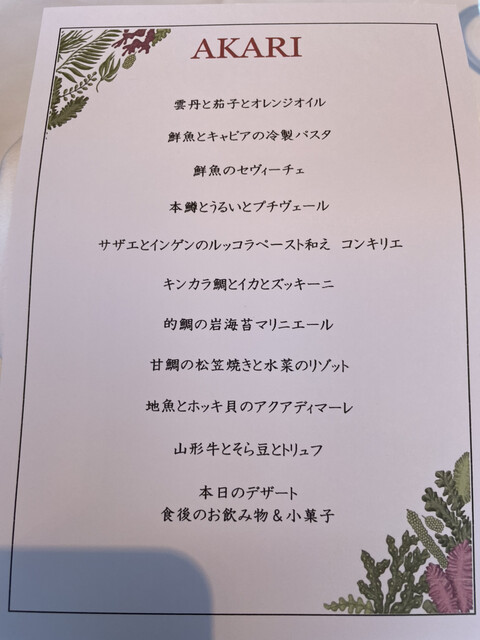 AKARI
雲丹と茄子とオレンジオイル
鮮魚とキャビアの冷製パスタ
鮮魚のセヴィーチェ
本鱒とうるいとプチヴェール
サザエとインゲンのルッコラペースト和え コンキリエ
キンカラ鯛とイカとズッキーニ
的鯛の岩海苔マリニエール
甘鯛の松笠焼きと水菜のリゾット
地魚とホッキ貝のアクアディマーレ
山形牛とそら豆とトリュフ
本日のデザート
食後のお飲み物&小菓子